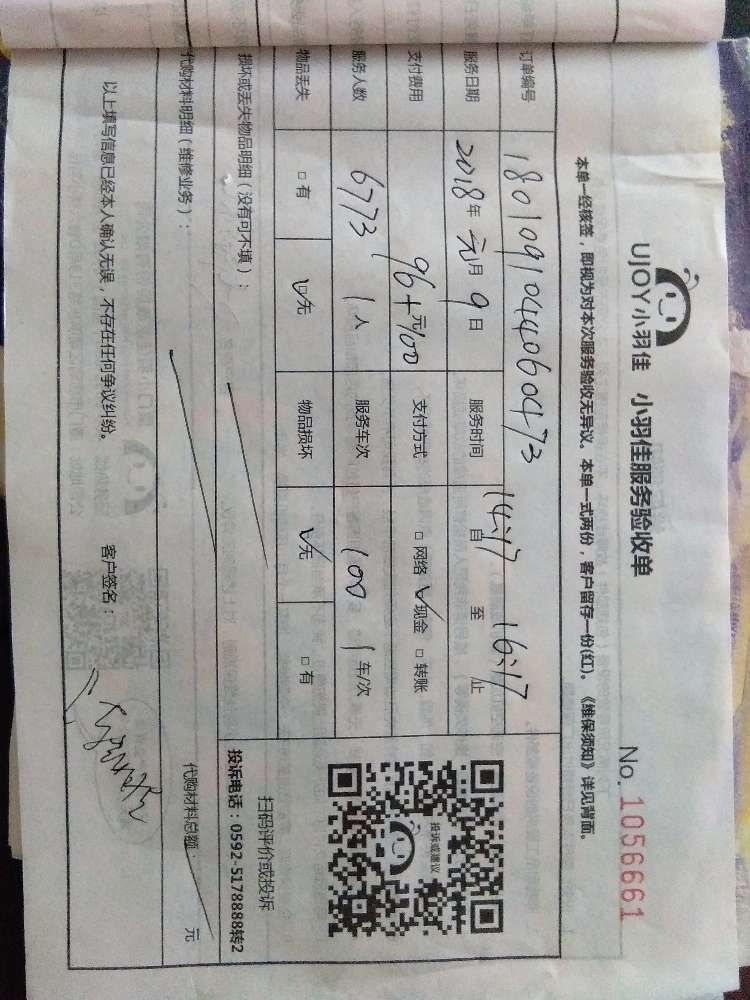 UJOY小羽佳 小羽佳服务验收单
No. 1056661
本单一经核签，即视为对本次服务验收无异议。本单一式两份，客户留存一份(红)。《维保须知》详见背面。
订单编号 1801091044060473
服务日期 2018年 元月 9日 服务时间 14:17 自 至 16:17 止
支付费用 96+100 元 支付方式 □网络 ☑现金 □转账
服务人数 6773 1人 服务车次 100 1车/次
物品丢失 □有 ☑无 物品损坏 ☑无 □有
损坏或丢失物品明细（没有可不填）：
代购材料明细（维修业务）： 代购材料总额： 元
投诉或建议
扫码评价或投诉
投诉电话：0592-5178888转2
以上填写信息已经本人确认无误，不存在任何争议纠纷。 客户签名：